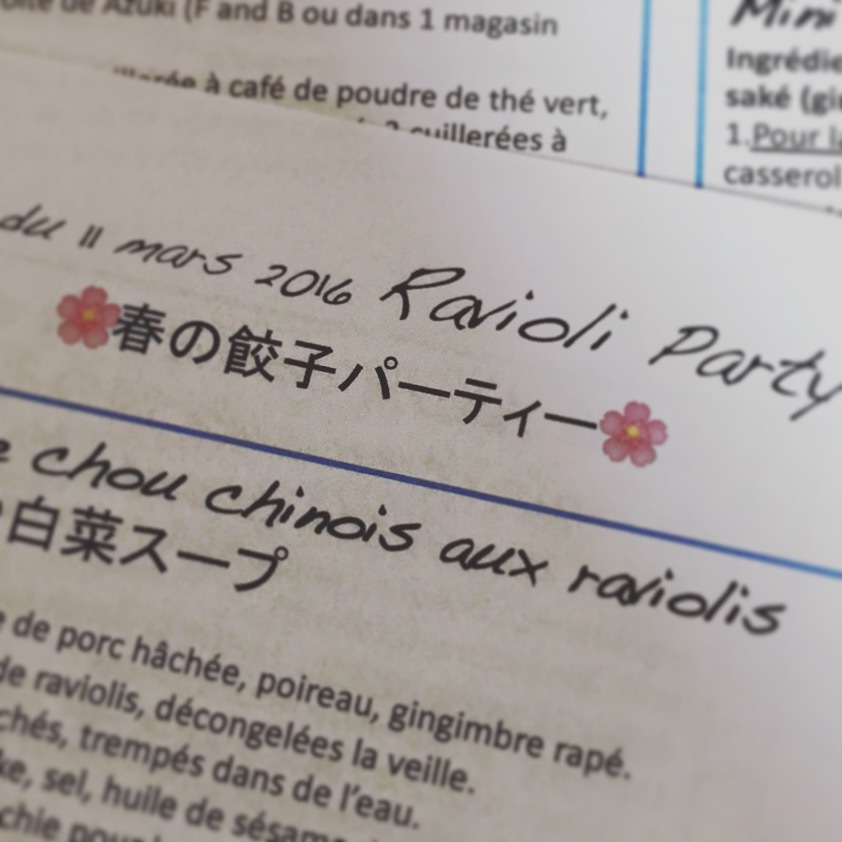 de Azuki (F and B ou dans 1 magasin
à café de poudre de thé vert,
cuillerées à
Mini
Ingrédie
saké (gi
1.Pour la
casserol
du 11 mars 2016 Ravioli Party
🌸春の餃子パーティー🌸
chou chinois aux raviolis
白菜スープ
de porc hâchée, poireau, gingimbre rapé.
de raviolis, décongelées la veille.
chés, trempés dans de l'eau.
ke, sel, huile de sésame
chie pour